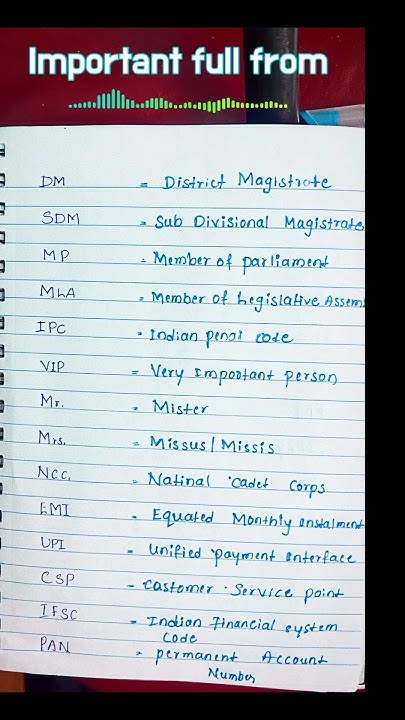 Important full from
DM = District Magistrate
SDM = Sub Divisional Magistrate
MP = Member of parliament
MLA = Member of Legislative Assem
IPC = Indian penal code
VIP = Very Impootant person
Mr. = Mister
Mrs. = Missus/Missis
NCC. = Natinal Cadet Corps
EMI = Equated Monthly instalment
UPI = Unified payment interface
CSP - Castomer Service point
IFSC = Indian Financial system
code
PAN = permanent Account
Number